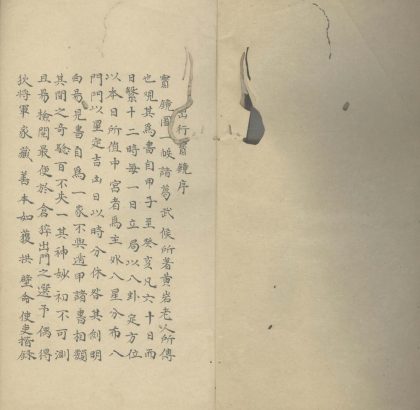 出行寶鏡序
寶鏡圖一帙諸葛武侯所著黃岩老人所傳
也觀其為書自甲子至癸亥凡六十日而
日繫十二時每一日立局以八卦定方位
以本日所值中宮者為主外八星分布八
門門以星定吉凶日以時分休咎其刻明
白易見書自為一家不與遁甲諸書相類
其間之奇驗百不失一其神妙初不可測
且易檢閱最便於倉猝出門之選予偶得
狄將軍家藏善本如獲拱璧命使吏繕錄